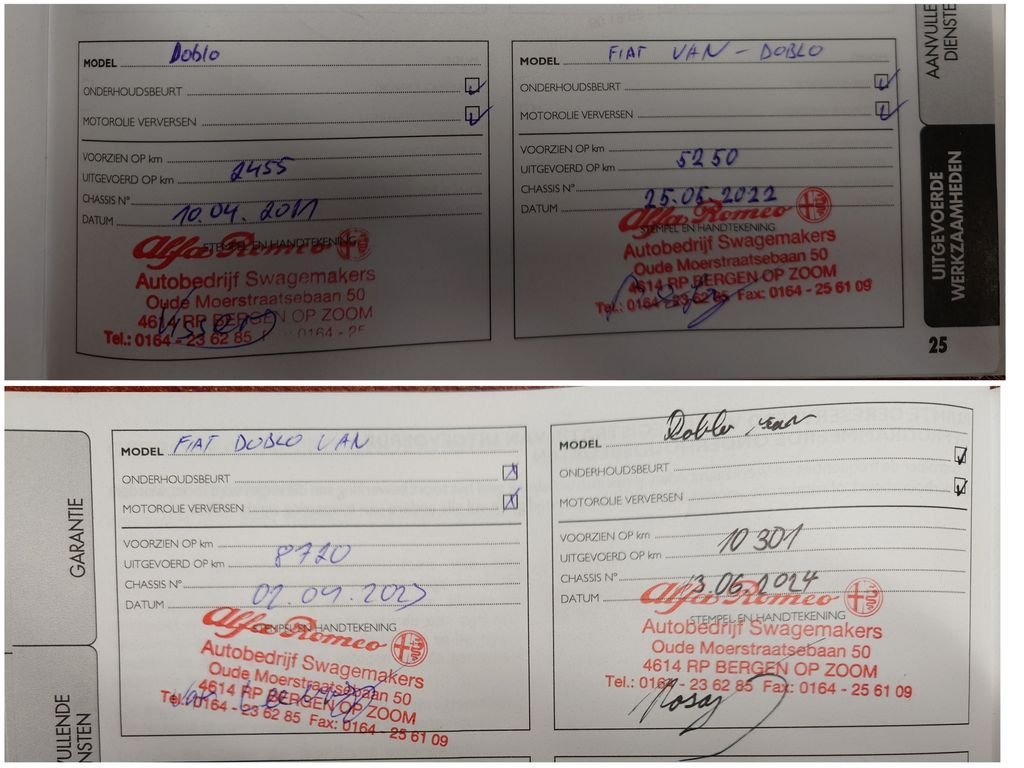 MODEL Doblo
ONDERHOUDSBEURT
MOTOROLIE VERVERSEN
VOORZIEN OP km
UITGEVOERD OP km 2455
CHASSIS N°
DATUM 10.04.2011
STEMPEL EN HANDTEKENING
Alfa Romeo
Autobedrijf Swagemakers
Oude Moerstraatsebaan 50
4614 RP BERGEN OP ZOOM
Tel.: 0164 - 23 62 85 0164 - 25
MODEL FIAT VAN - DOBLO
ONDERHOUDSBEURT
MOTOROLIE VERVERSEN
VOORZIEN OP km
UITGEVOERD OP km 5250
CHASSIS N°
DATUM 25.05.2022
STEMPEL EN HANDTEKENING
Alfa Romeo
Autobedrijf Swagemakers
Oude Moerstraatsebaan 50
4614 RP BERGEN OP ZOOM
Tel.: 0164 - 23 62 85 Fax: 0164 - 25 61 09
AANVULLE
DIENSTE
UITGEVOERDE
WERKZAAMHEDEN
25
GARANTIE
VULLENDE
NSTEN
MODEL FIAT DOBLO VAN
ONDERHOUDSBEURT
MOTOROLIE VERVERSEN
VOORZIEN OP km
UITGEVOERD OP km 8720
CHASSIS N°
DATUM 02.04.2023
STEMPEL EN HANDTEKENING
Alfa Romeo
Autobedrijf Swagemakers
Oude Moerstraatsebaan 50
4614 RP BERGEN OP ZOOM
Tel.: 0164 - 23 62 85 Fax: 0164 - 25 61 09
MODEL Doblo van
ONDERHOUDSBEURT
MOTOROLIE VERVERSEN
VOORZIEN OP km
UITGEVOERD OP km 10 301
CHASSIS N°
DATUM 13.06.2024
STEMPEL EN HANDTEKENING
Alfa Romeo
Autobedrijf Swagemakers
Oude Moerstraatsebaan 50
4614 RP BERGEN OP ZOOM
Tel.: 0164 - 23 62 85 Fax: 0164 - 25 61 09